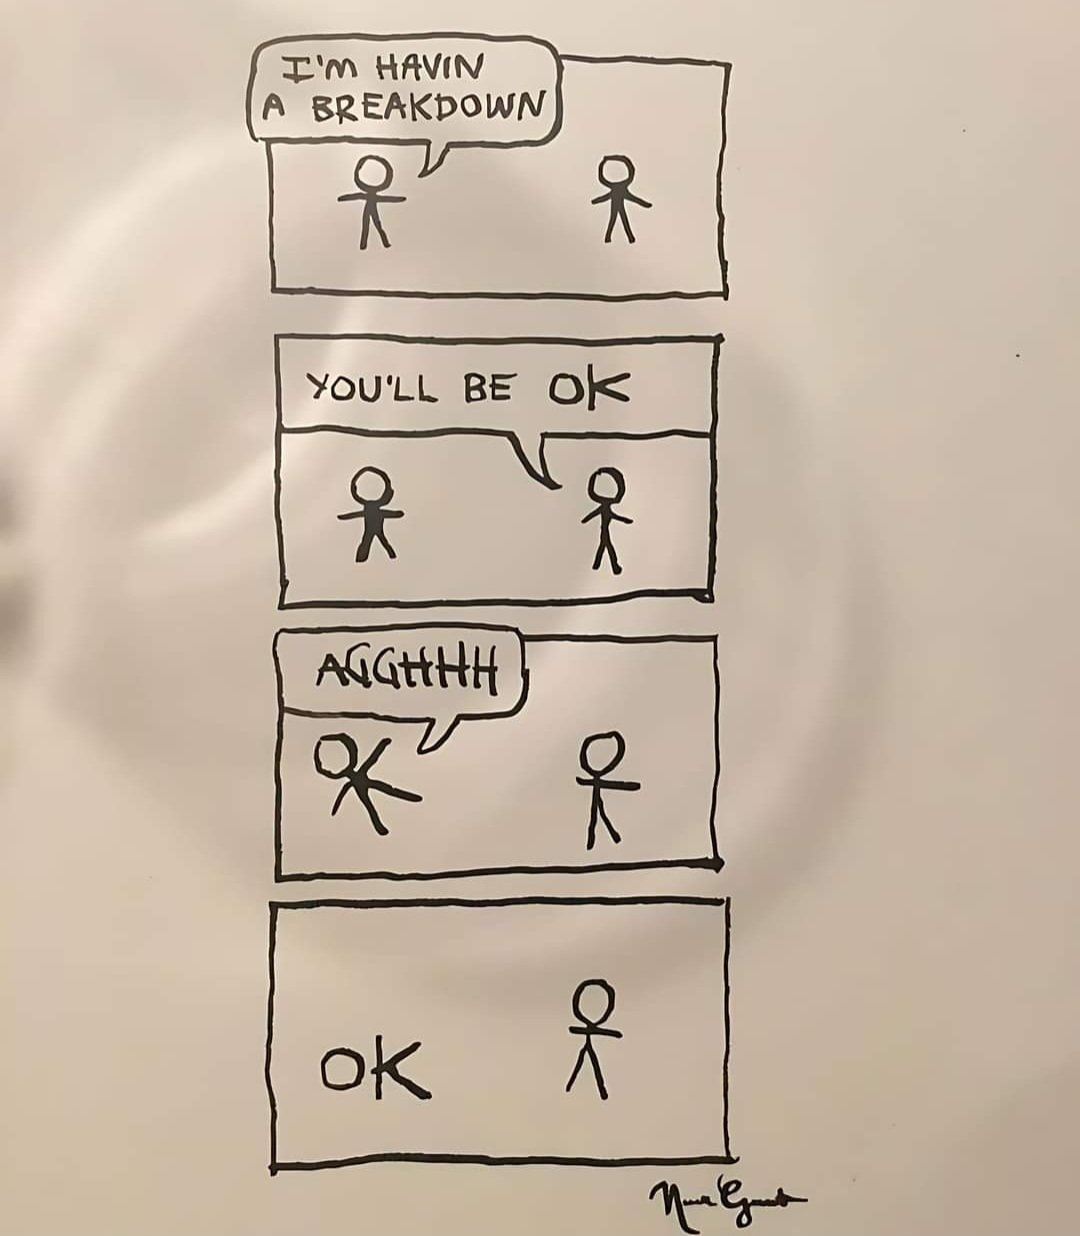 I'M HAVIN
A BREAKDOWN
YOU'LL BE OK
AGGHHH
OK